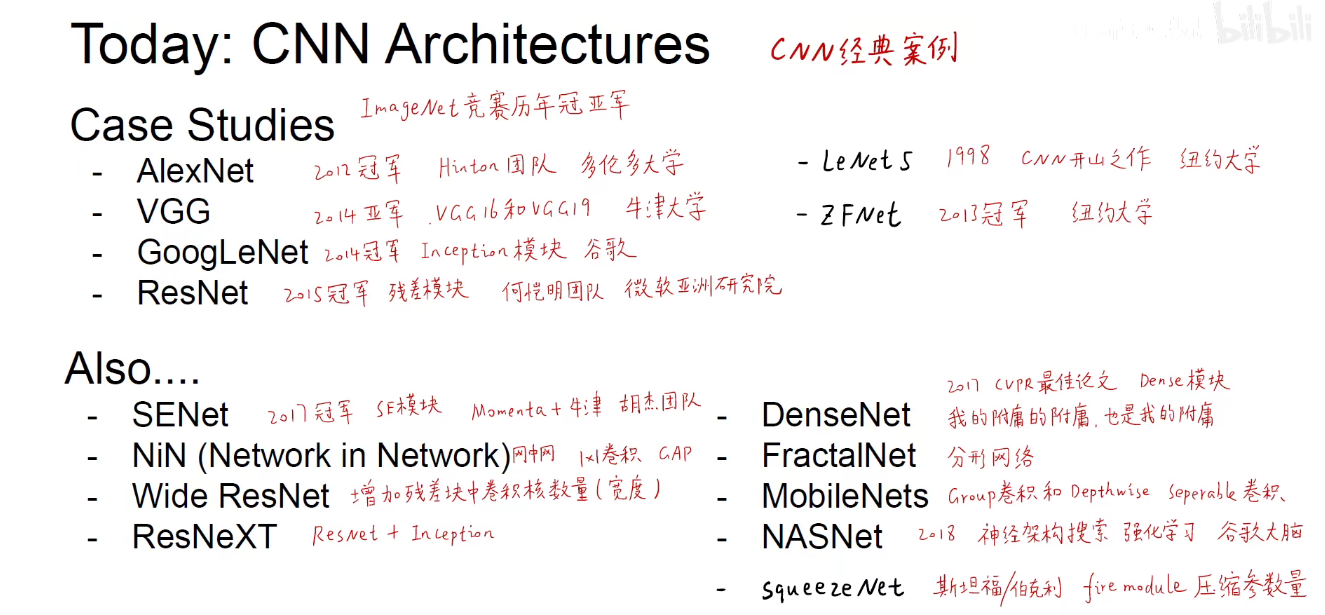 Today: CNN Architectures CNN经典案例
bilibili
Case Studies ImageNet竞赛历年冠亚军
- AlexNet 2012冠军 Hinton团队 多伦多大学
- VGG 2014亚军 VGG16和VGG19 牛津大学
- GoogLeNet 2014冠军 Inception模块 谷歌
- ResNet 2015冠军 残差模块 何恺明团队 微软亚洲研究院
- LeNet5 1998 CNN开山之作 纽约大学
- ZFNet 2013冠军 纽约大学
Also....
- SENet 2017冠军 SE模块 Momenta+牛津 胡杰团队
- NiN (Network in Network) 网中网 1x1卷积、GAP
- Wide ResNet 增加残差块中卷积核数量(宽度)
- ResNeXT ResNet + Inception
2017 CVPR最佳论文 Dense模块
- DenseNet 我的附庸的附庸,也是我的附庸
- FractalNet 分形网络
- MobileNets Group卷积和Depthwise Seperable卷积、
- NASNet 2018 神经架构搜索 强化学习 谷歌大脑
- squeezeNet 斯坦福/伯克利 fire module 压缩参数量